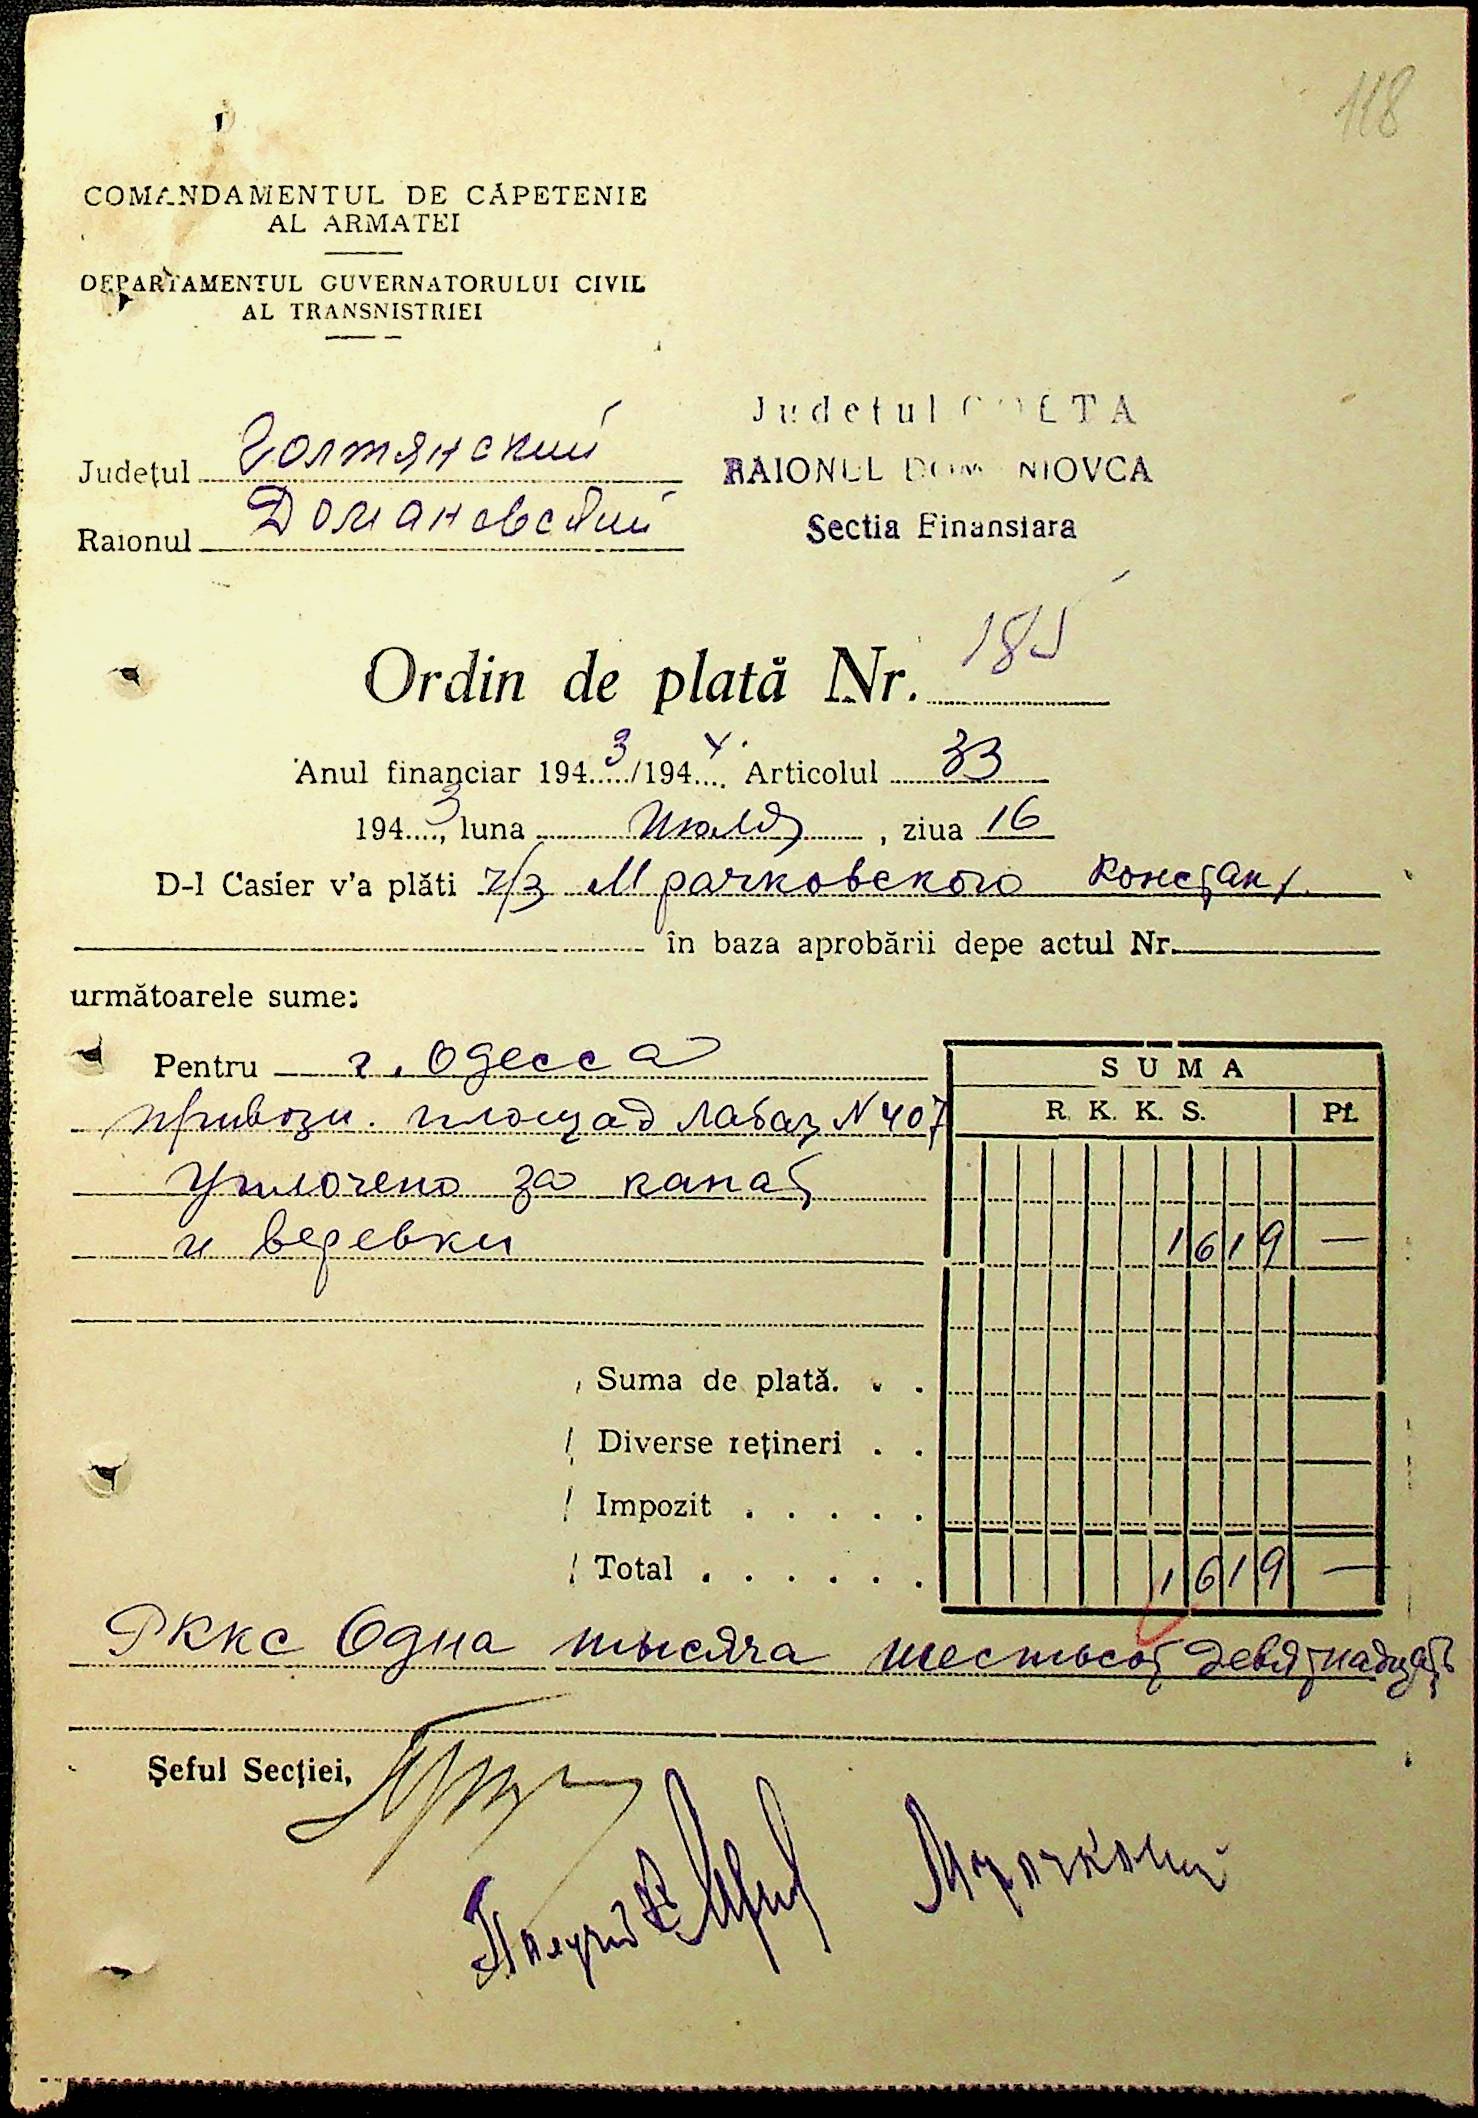 118
COMANDAMENTUL DE CĂPETENIE
AL ARMATEI
DEPARTAMENTUL GUVERNATORULUI CIVIL
AL TRANSNISTRIEI
Județul Голтянский
Raionul Домановский
Judetul GOLTA
RAIONUL DOMANIOVCA
Sectia Finansiara
Ordin de plată Nr. 185
Anul financiar 1943/1944 Articolul 33
1943, luna июля, ziua 16
D-l Casier v'a plăti ч/з Мрачковского Констант.
în baza aprobării depe actul Nr.
următoarele sume:
Pentru г. Одесса
привозн. площад лабаз N 407
Уплочено за канат
и веревки
SUMA
R. K. K. S. Pf.
1619 —
Suma de plată. . .
Diverse rețineri . .
Impozit . . . . .
Total . . . . . . 1619 —
РККС Одна тысяча шестьсот девятнадцать
Șeful Secției,